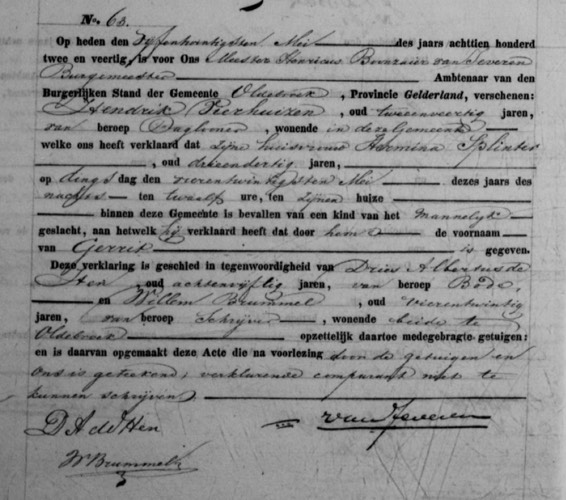 No. 63.
Op heden den Zesentwintigsten Mei des jaars achttien honderd
twee en veertig, is voor Ons Meester Henricus van Zeveren
Burgemeester Ambtenaar van den
Burgerlijken Stand der Gemeente Oldebroek, Provincie Gelderland, verschenen:
Hendrik Vierhuizen, oud tweeenveertig jaren,
van beroep Daglooner, wonende in deze Gemeente
welke ons heeft verklaard dat zijne huisvrouw Hermina Splinter
, oud drieendertig jaren,
op dings dag den vierentwintigsten Mei dezes jaars des
nachts ten twaalf ure, ten zijnen huize
binnen deze Gemeente is bevallen van een kind van het Mannelijk
geslacht, aan hetwelk hij verklaard heeft dat door hem de voornaam
van Gerrit is gegeven.
Deze verklaring is geschied in tegenwoordigheid van Dries Albertus de
Hen, oud achtenvijftig jaren, van beroep Bode,
en Willem Brummel, oud vierentwintig
jaren, van beroep Schrijver, wonende beide te
Oldebroek opzettelijk daartoe medegebragte getuigen:
en is daarvan opgemaakt deze Acte die na voorlezing door de getuigen en
Ons is geteekend, verklarende comparant niet te
kunnen schrijven
D A de Hen van Zeveren
W Brummel